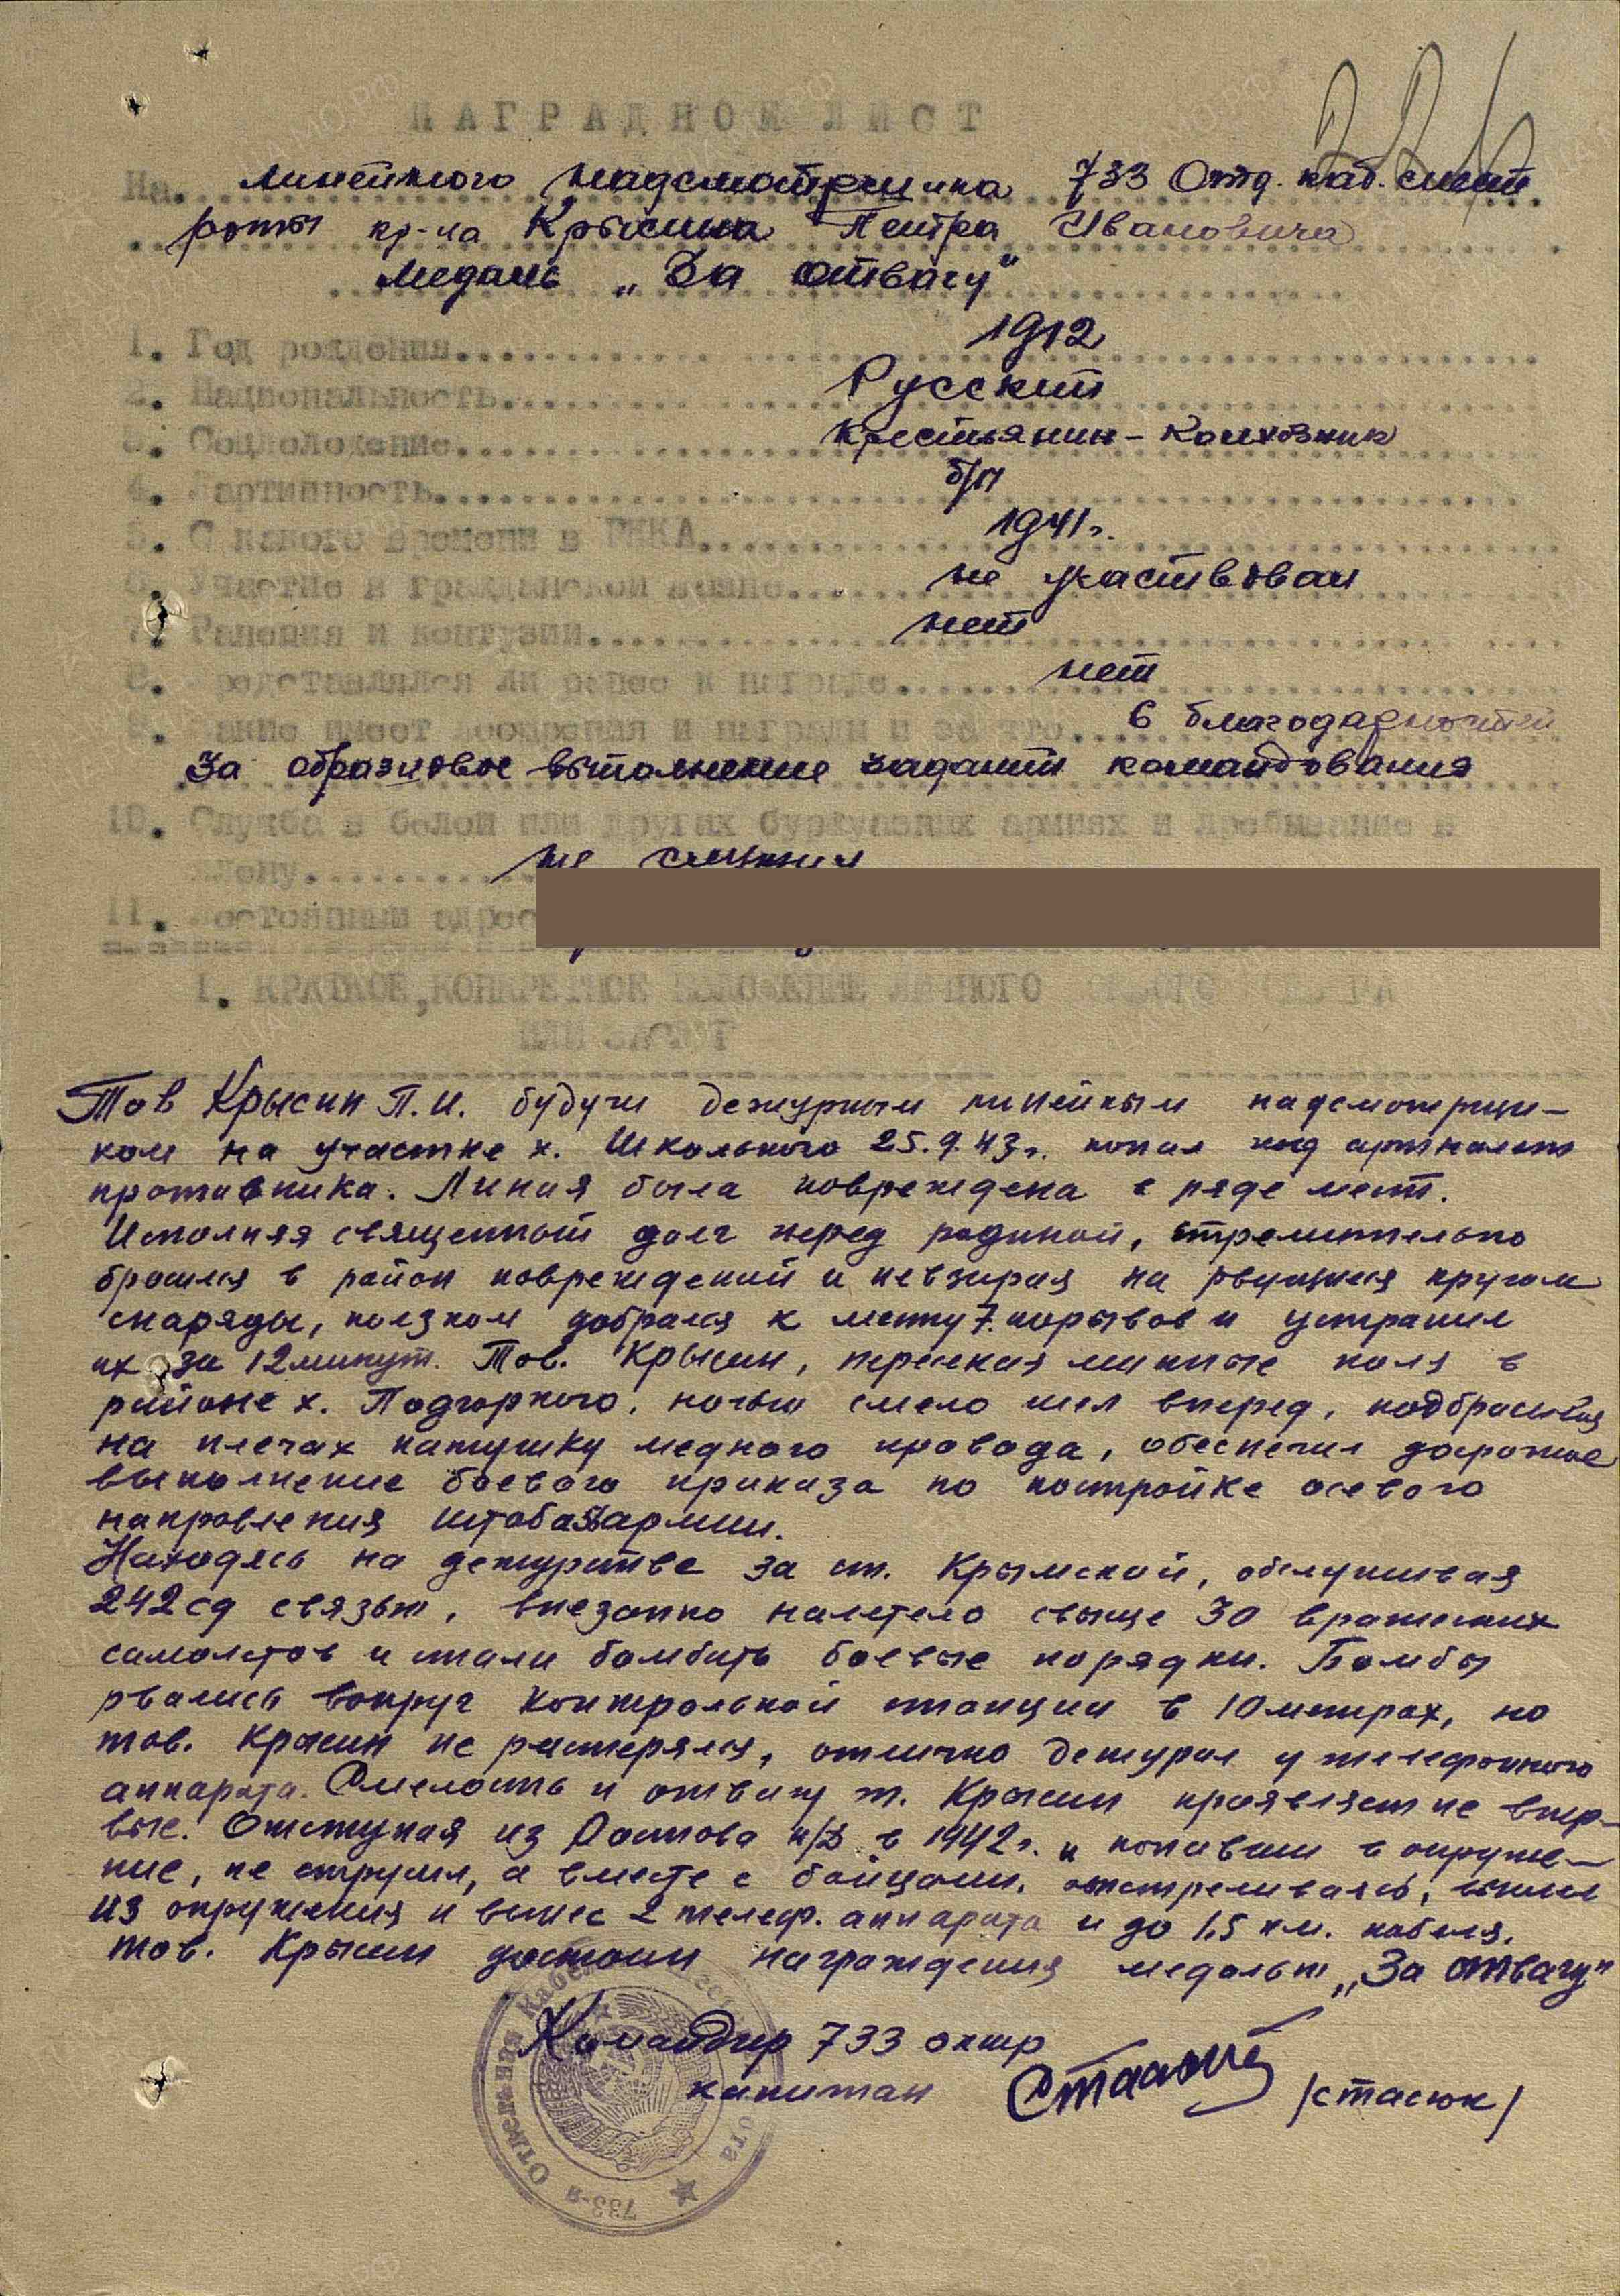 НАГРАДНОЙ ЛИСТ
На линейного надсмотрщика 733 Отд. каб. шест.
роты кр-ца Крысина Петра Ивановича
медаль „За отвагу"
1. Год рождения 1912
2. Национальность Русский
3. Соцположение Крестьянин - Колхозник
4. Партийность б/п
5. С какого времени в РККА 1941 г.
6. Участие в гражданской войне не участвовал
7. Ранения и контузии нет
8. Представлялся ли ранее к награде нет
9. Какие имеет поощрения и награды и за что 6 благодарностей
за образцовое выполнение заданий командования
10. Служба в белой или других буржуазных армиях и пребывание в
плену не служил
11. Постоянный адрес
I. КРАТКОЕ, КОНКРЕТНОЕ ИЗЛОЖЕНИЕ ЛИЧНОГО БОЕВОГО ПОДВИГА
ИЛИ ЗАСЛУГ
Тов Крысин П.И. будучи дежурным линейным надсмотрщи-
ком на участке х. Школьного 25.9.43 г. попал под артналет
противника. Линия была повреждена в ряде мест.
Исполняя священный долг перед родиной, стремительно
бросился в район повреждений и невзирая на рвущиеся кругом
снаряды, ползком добрался к месту 7 порывов и устранил
их за 12 минут. Тов. Крысин, пересекая минные поля в
районе х. Подгорного, ночью смело шел вперед, подбрасывая
на плечах катушку медного провода, обеспечил досрочное
выполнение боевого приказа по постройке осевого
направления штаба армии.
Находясь на дежурстве за ст. Крымской, обслуживая
242 сд связью, внезапно налетело свыше 30 вражеских
самолетов и стали бомбить боевые порядки. Бомбы
рвались вокруг контрольной станции в 10 метрах, но
тов. Крысин не растерялся, отлично дежурил у телефонного
аппарата. Смелость и отвагу т. Крысин проявляет не впер-
вые. Отступая из Ростова н/Д в 1942 г. и попавши в окруже-
ние, не струсил, а вместе с бойцами, отстреливаясь, вышел
из окружения и вынес 2 телеф. аппарата и до 1,5 км. кабеля.
тов. Крысин достоин награждения медалью „За отвагу"
Командир 733 окшр
капитан /Стасюк/
733-я Отдельная Кабельно рота